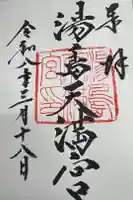 奉拝
湯島天満宮
令和八年三月十八日